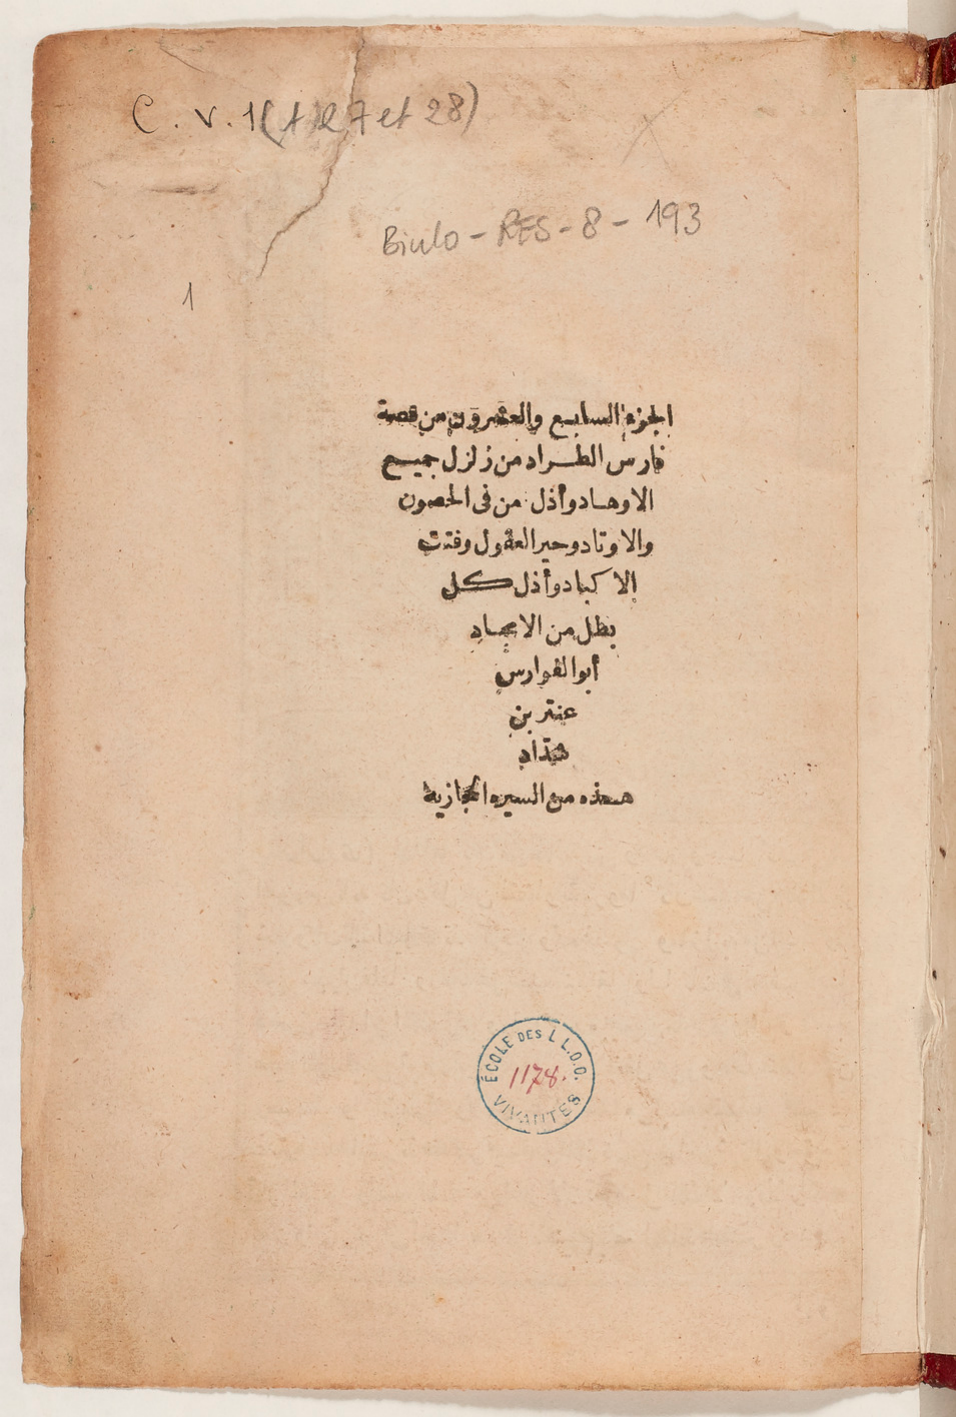 C. V. 1 (t 27 et 28)
Biulo - RES - 8 - 193
1
الجزء السابع والعشرون من قصة
فارس الطراد من زلزل جميع
الاوهاد وأذل من فى الحصون
والاوتاد وحير العقول وفتت
الاكباد وأذل كل
بطل من الامجاد
أبو الفوارس
عنتر بن
شداد
هذه من السيره الحجازية
ÉCOLE DES L L.O.O.
1178.
VIVANTES